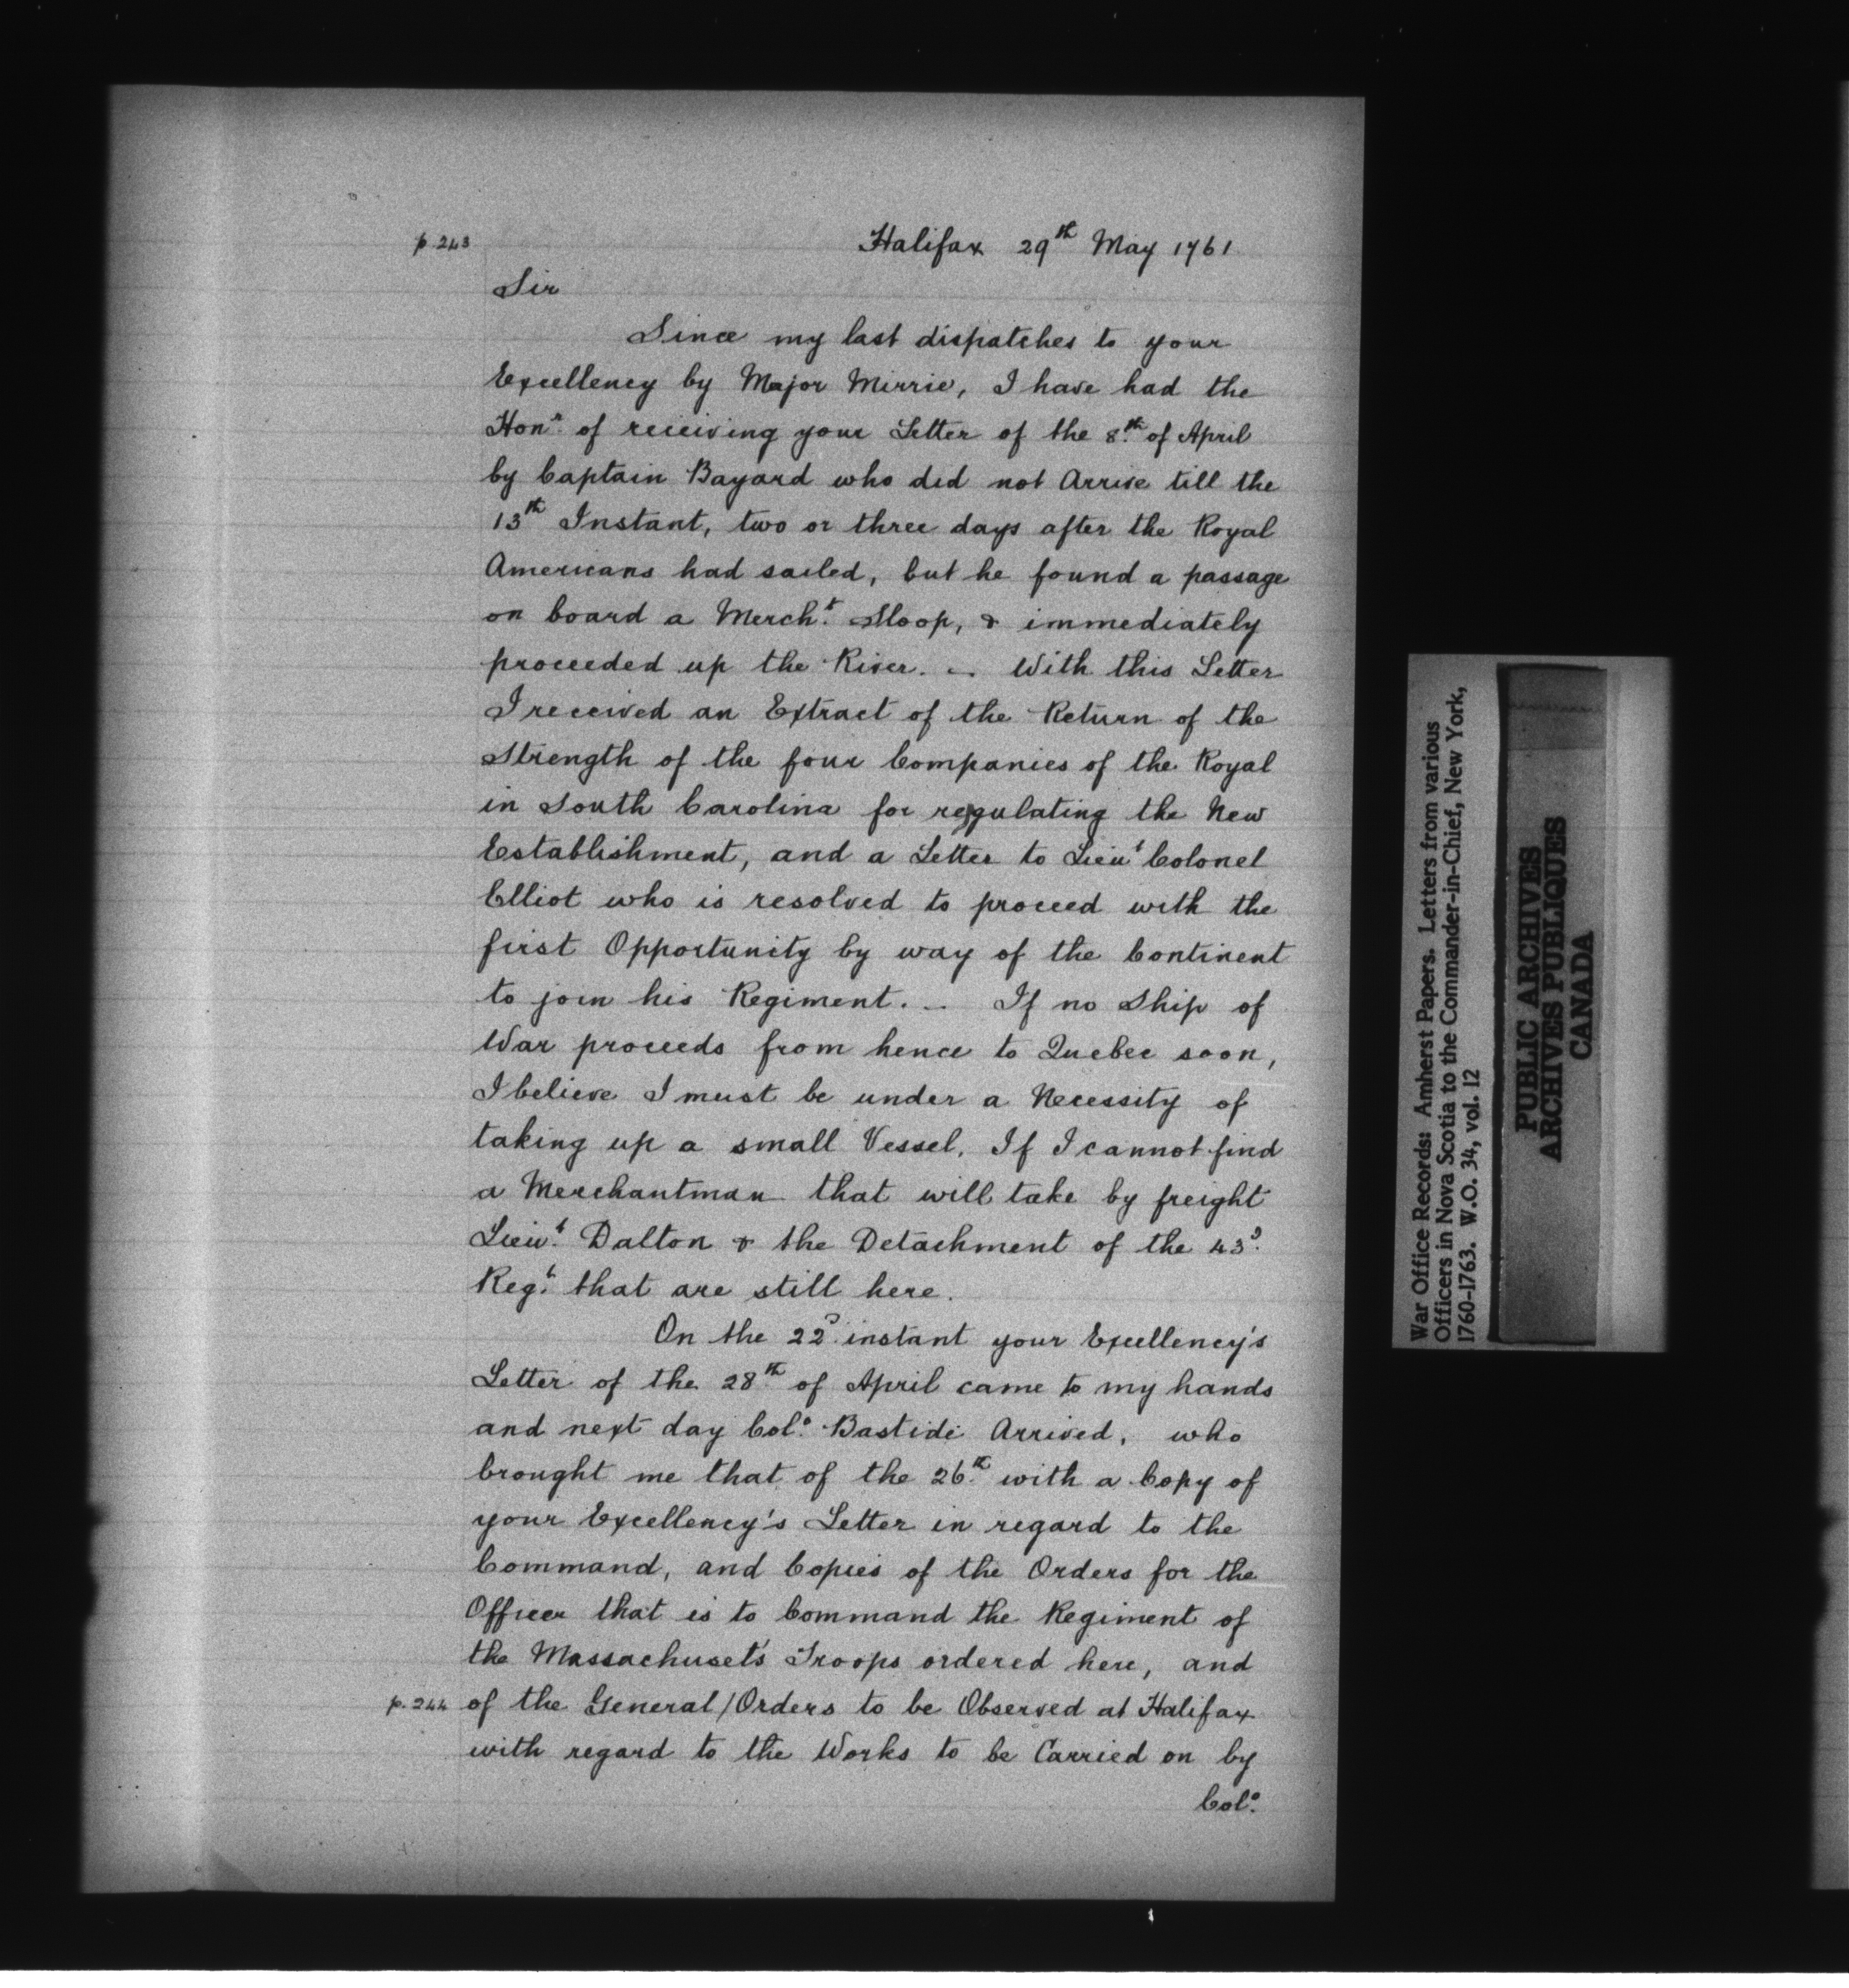 p. 243
Halifax 29th May 1761
Sir
Since my last dispatches to your
Excellency by Major Mirrie, I have had the
Honr. of receiving your Letter of the 8th. of April
by Captain Bayard who did not Arrive till the
13th Instant, two or three days after the Royal
Americans had sailed, but he found a passage
on board a Mercht. Sloop, & immediately
proceeded up the River. – With this Letter
I received an Extract of the Return of the
Strength of the four Companies of the Royal
in South Carolina for regulating the New
Establishment, and a Letter to Lieut Colonel
Elliot who is resolved to proceed with the
first Opportunity by way of the Continent
to join his Regiment. – If no Ship of
War proceeds from hence to Quebec soon,
I believe I must be under a Necessity of
taking up a small Vessel. If I cannot find
a Merchantman that will take by freight
Lieut. Dalton & the Detachment of the 43d.
Regt. that are still here.
On the 22d. instant your Excellency's
Letter of the 28th. of April came to my hands
and next day Colo. Bastide Arrived, who
brought me that of the 26th. with a Copy of
your Excellency's Letter in regard to the
Command, and Copies of the Orders for the
Officer that is to Command the Regiment of
the Massachuset's Troops ordered here, and
p. 244 of the General/Orders to be Observed at Halifax
with regard to the Works to be Carried on by
Colo.
War Office Records: Amherst Papers. Letters from various
Officers in Nova Scotia to the Commander-in-Chief, New York,
1760-1763. W.O. 34, vol. 12
PUBLIC ARCHIVES
ARCHIVES PUBLIQUES
CANADA